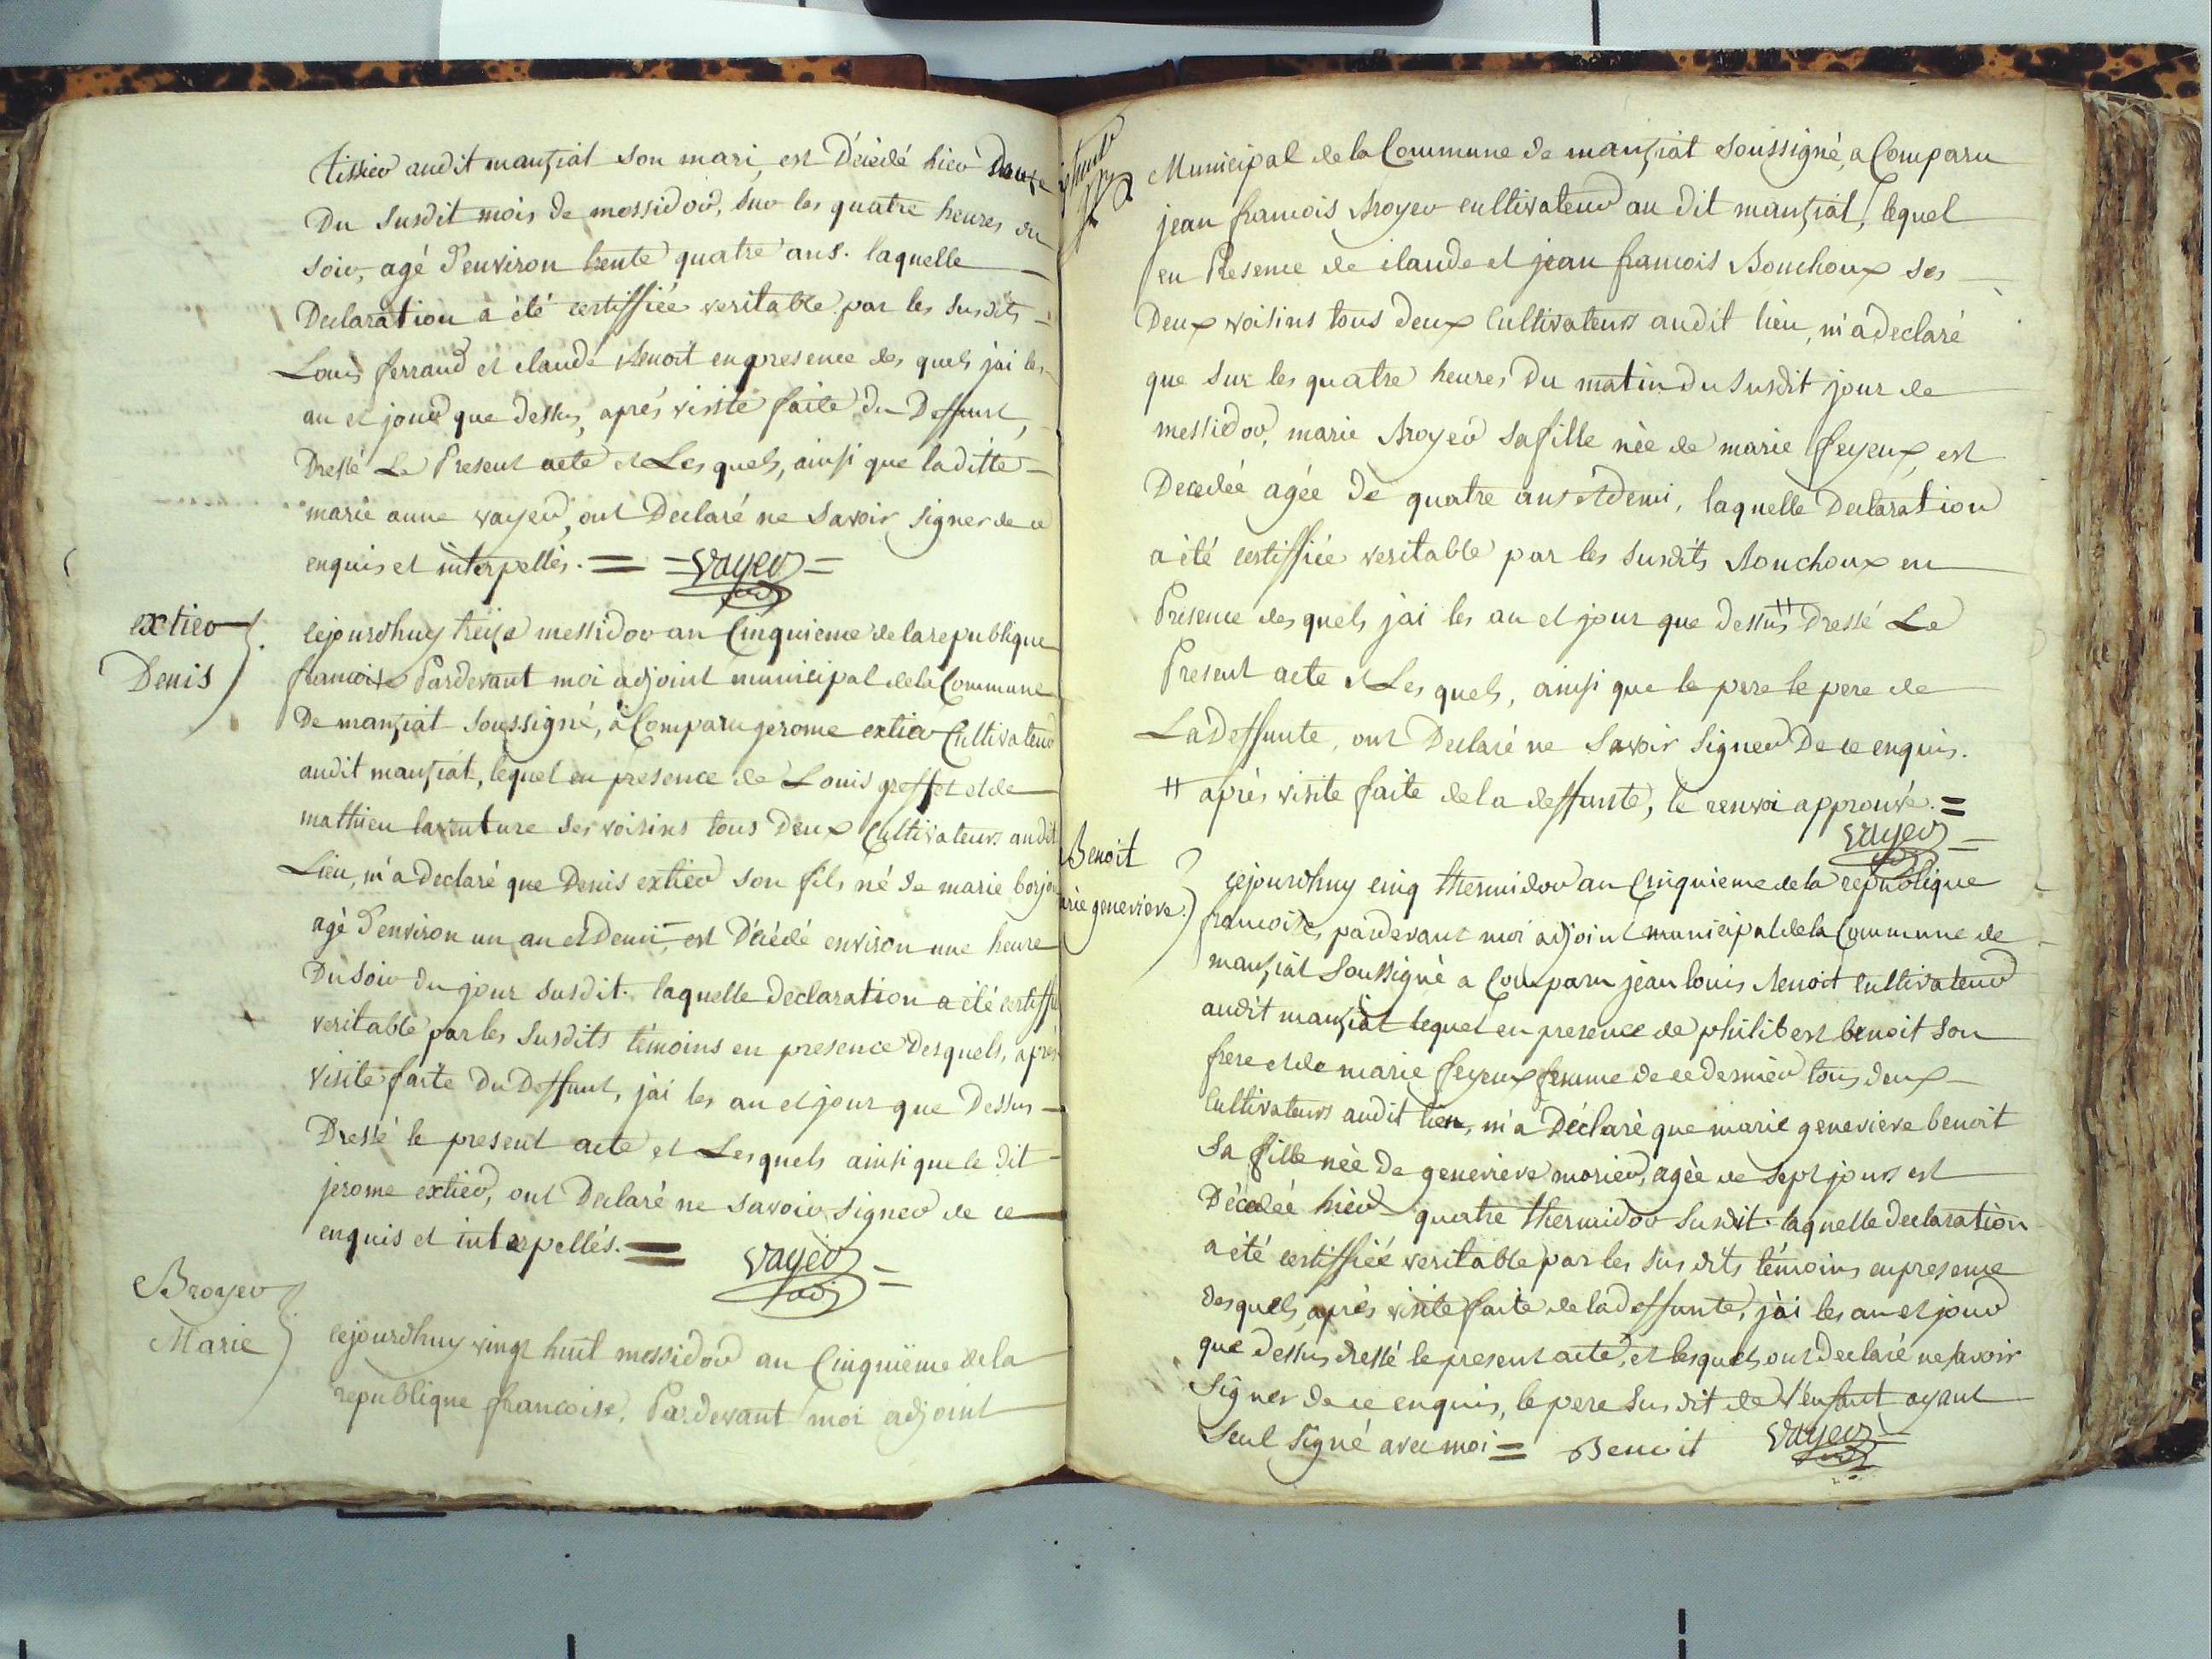 tissier audit manziat son mari, est Décédé hier Douze
Du susdit mois de messidor, sur les quatre heures du
soir, agé d'environ trente quatre ans. laquelle
Declaration a été certiffiée veritable par les susdits
Louis ferrand et claude Benoit en presence des quels j'ai les
an et jour que dessus, aprés visite faite du Deffunt,
Dressé Le Present acte et Les quels, ainsi que laditte
marie anne vayer, ont Declaré ne savoir signer de ce
enquis et interpellés. = = vayer =
extier
Denis
cejourdhuy treize messidor an Cinquieme de la republique
francoise Pardevant moi adjoint municipal dela Commune
De manziat soussigné, à Comparu jerome extier Cultivateur
audit manziat, lequel en presence de Louis greffet et de
mathieu laventure ses voisins tous Deux Cultivateurs audit
Lieu, m'a Declaré que Denis extier son fils né de marie borjon
agé d'environ un an et Demi, est Décédé environ une heure
Du soir du jour susdit. laquelle declaration a été certiffi
veritable par les susdits témoins en presence Desquels, aprés
visite faite Du Deffunt, j'ai les an et jour que Dessus
Dressé le present acte et Lesquels ainsi que le dit
jerome extier, ont Declaré ne savoir signer de ce
enquis et interpellés. = vayer =
Broyer
Marie
cejourdhuy vingt huit messidor an Cinquième dela
republique francoise, Pardevant moi adjoint
Municipal de la Commune de manziat soussigné, a Comparu
jean francois Broyer cultivateur au dit manziat, lequel
en Presence de claude et jean francois Bouchoux ses
Deux voisins tous deux Cultivateurs audit lieu, m'a declaré
que sur les quatre heures Du matin du susdit jour de
messidor, marie Broyer sa fille née de marie feyeux, est
Decedée agée De quatre ans et demi, laquelle Declaration
a été certiffiée veritable par les susdits Bouchoux en
Presence des quels j'ai les an et jour que dessus # Dressé Le
Present acte et Les quels, ainsi que le pere le pere de
La Deffunte, ont Declaré ne savoir signer De ce enquis.
# aprés visite faite de la deffunte, le renvoi approuvé. =
vayer =
Benoit
arie genevieve.
cejourdhuy cinq thermidor an Cinquieme de la republique
francoise, pardevant moi adjoint municipal dela Commune de
manziat soussigné a Comparu jean louis Benoit cultivateur
audit manziat lequel en presence de philibert benoit son
frere et de marie feyeux femme de ce dernier tous deux
Cultivateurs audit lieu, m'a Déclaré que marie genevieve benoit
sa fille née de genevieve morier, agée de sept jours est
Décédée hier quatre thermidor susdit. laquelle declaration
a été certiffiée veritable par les sus dits témoins en presence
desquels, aprés visite faite de la deffunte, j'ai les an et jour
que dessus dressé le present acte, et lesquels ont declaré ne savoir
signer de ce enquis, le pere sus dit de l'enfant ayant
seul signé avec moi = Benoit vayer